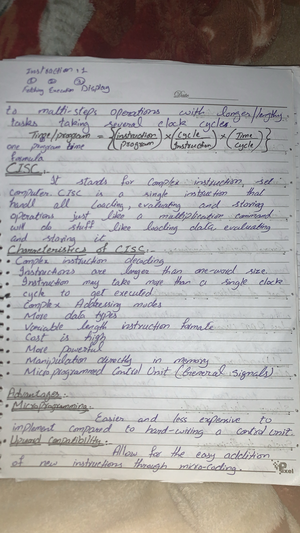 Instruction: 1
① ② ③
Fetching Execution Display
Date:
to multi-steps operations with longer/lengthy
tasks taking several clock cycles
Time/program = {(instruction/Program) x (Cycle/Instruction) x (Time/Cycle)}
one program time
formula
CISC:-
It stands for Complex instruction set
computer. CISC is a single instruction that
handl all loading, evaluating and storing
operations just like a multiplication command
will do stuff like loading data, evaluating
and storing it.
Characteristics of CISC:-
Complex instruction decoding
Instructions are longer than one-word size.
Instruction may take more than a single clock
cycle to get executed.
Complex Addressing modes
More data types
Variable length instruction formate
Cost is high
More powerful
Manipulation directly in memory
Microprogrammed Control Unit (General signals)
Advantages:-
Microprogramming:
Easier and less expensive to
implement compared to hard-wiring a control unit.
Upward Compatibility:
Allow for the easy addition
of new instructions through micro-coding.
Pixel